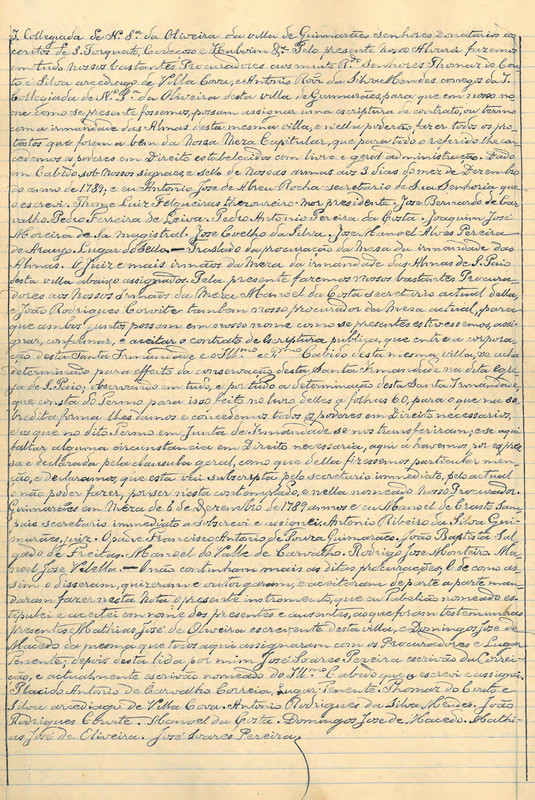 I. Collegiada de N.ª Sn.ra da Oliveira da villa de Guimarães e senhores Donatarios dos
coutos de S. Torquato, Codeçoso e Kalvim &.ª Pelo presente nosso Alvará fazemos
em tudo nossos bastantes Procuradores aos muito R.dos Senhores Thomaz do Cou-
to e Silva arcediago de Villa Cova, e Antonio Roiz da Silva Mendes conego da I.
Collegiada de N.ª S.ra da Oliveira desta villa de Guimarães, para que em nosso no-
me como se presente fossemos, possam assignar uma escriptura de contrato, ou termo
com a irmandade das Almas desta mesma villa, e nella poderão fazer todos os pro-
testos que forem a bem da Nossa Meza Capitular, que para todo o referido lhe con-
cedemos os poderes em Direito estabelecidos com livre e geral administração. Dado
em Cabido, sob nossos signaes e sello de nossas armas aos 3 dias do mez de Dezembro
do anno de 1789; e eu Antonio José de Abreu Rocha secretario de Sua Senhoria que
o escrevi. Thome Luiz Felgueiras thezoureiro-mor presidente. Jose Bernardo de Car-
valho. Pedro Ferreira de Leiva. Pedro Antonio Pereira da Costa. Joaquim José
Moreira de Sá magistral. José Coelho da Silva. Jose Manoel Alves Pereira
de Araujo. Lugar do Sello. — Traslado da procuração da Mesa da irmandade das
Almas. O Juiz e mais irmãos da Meza da irmandade das Almas de S. Paio
desta villa abaixo assignados. Pela presente fazemos nossos bastantes Procura-
dores aos nossos Irmãos da Meza Manoel da Costa secretario actual della,
e João Rodrigues Eorvite tambem nosso procurador da Mesa actual, para
que ambos juntos possam em nosso nome como se presentes estivessemos, assi-
gnar, confirmar, e aceitar o contrato de Escriptura publica, que entre a corpora-
ção desta Santa Irmandade e o Ill.mo e R.mo Cabido desta mesma villa, se acha
determinado para effeito da conservação desta Santa Irmandade na dita Egre-
ja de S. Paio; observando em tudo, e por tudo a determinação desta Santa Irmandade,
que consta do Termo para isso feito no livro delles a folhas 60, para o que na so-
bredita forma lhes damos e concedemos todos os poderes em Direito necessarios,
e os que no dito Termo em Junta de Irmandade se nos transferiram; e se aqui
faltar alguma circunstancia em Direito necessaria, aqui a havemos por expres-
sa e declarada pela clausula geral, como que della fizessemos particular men-
ção, e declaramos que esta vai subscripta pelo secretario immediato, pelo actual
o não poder fazer, por ser nesta contemplado, e nella nomeado nosso Procurador.
Guimarães em Meza de 6 de Dezembro de 1789 annos e eu Manoel de Crasto Sam-
paio secretario immediato a subscrevi e assignei. Antonio Ribeiro da Silva Gui-
marães, juiz. O padre Francisco Antonio de Souza Guimarães. João Baptista Sal-
gado de Freitas. Manoel do Valle de Carvalho. Rodrigo José Monteiro. Ma-
noel José Vilella. — E não continham mais as ditas procurações; E de como as-
sim o disseram, quizeram e outorgaram, e aceiteram de parte a parte man-
daram fazer nesta Nota o presente instromento, que eu Tabelião nomeado es-
tipulei e aceitei em nome dos presentes e ausentes, ao que foram testemunhas
presentes Mathias José de Oliveira escrevente desta villa, e Domingos José de
Macedo da mesma que todos aqui assignaram com os Procuradores e Lugar
Tenente; depois desta lida por mim José Soares Pereira escrivão da Correi-
ção, e actualmente escrivão nomeado do Ill.mo Cabido que o escrevi e assignei.
Placido Antonio de Carvalho Correia, Lugar-Tenente. Thomaz do Couto e
Silva arcediago de Villa Cova. Antonio Rodrigues da Silva Mendes. João
Rodrigues. Manoel da Costa. Domingos Jose de Macedo. Mathi-
as José de Oliveira. José Soares Pereira.